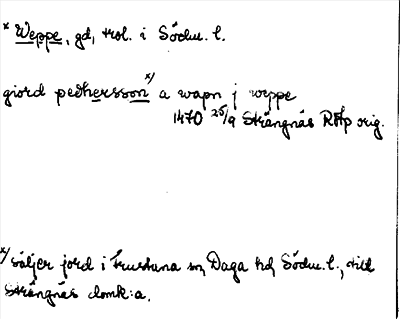 x Weppe, gd, trol. i Södm. l.
giord pedhersson x/ a wapn j weppe
1470 25/9 Strängnäs RAp orig.
x/ säljer jord i Frustuna sn, Daga hd, Södm. l., till
Strängnäs domk:a.